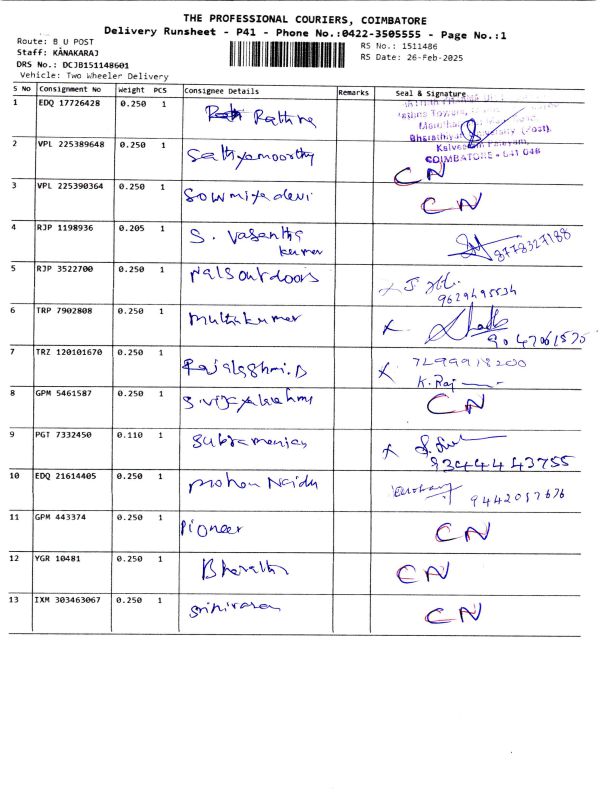 THE PROFESSIONAL COURIERS, COIMBATORE
Delivery Runsheet - P41 - Phone No.:0422-3505555 - Page No.:1
Route: B U POST
Staff: KANAKARAJ
DRS No.: DCJB151148601
Vehicle: Two Wheeler Delivery
RS No.: 1511486
RS Date: 26-Feb-2025
S No Consignment No Weight PCS Consignee Details Remarks Seal & Signature
1 EDQ 17726428 0.250 1 Rathna
Bharathiyar University (Post),
COIMBATORE - 641 046
2 VPL 225389648 0.250 1 Sathyamoorthy CN
3 VPL 225390364 0.250 1 Sowmiyadevi CN
4 RJP 1198936 0.205 1 S. Vasantha
Kumar
8778327188
5 RJP 3522700 0.250 1 Nalsoutdoors
9629495534
6 TRP 7902808 0.250 1 Muthukumar
7 TRZ 120101670 0.250 1 Rajalaghmi.D
K. Raj
8 GPM 5461587 0.250 1 S.vijayalakshmi CN
9 PGT 7332450 0.110 1 Subramanian
9344443755
10 EDQ 21614405 0.250 1 Mohan Naidu
11 GPM 443374 0.250 1 Pioneer CN
12 YGR 10481 0.250 1 Bharathi CN
13 IXM 303463067 0.250 1 Srinivasan CN